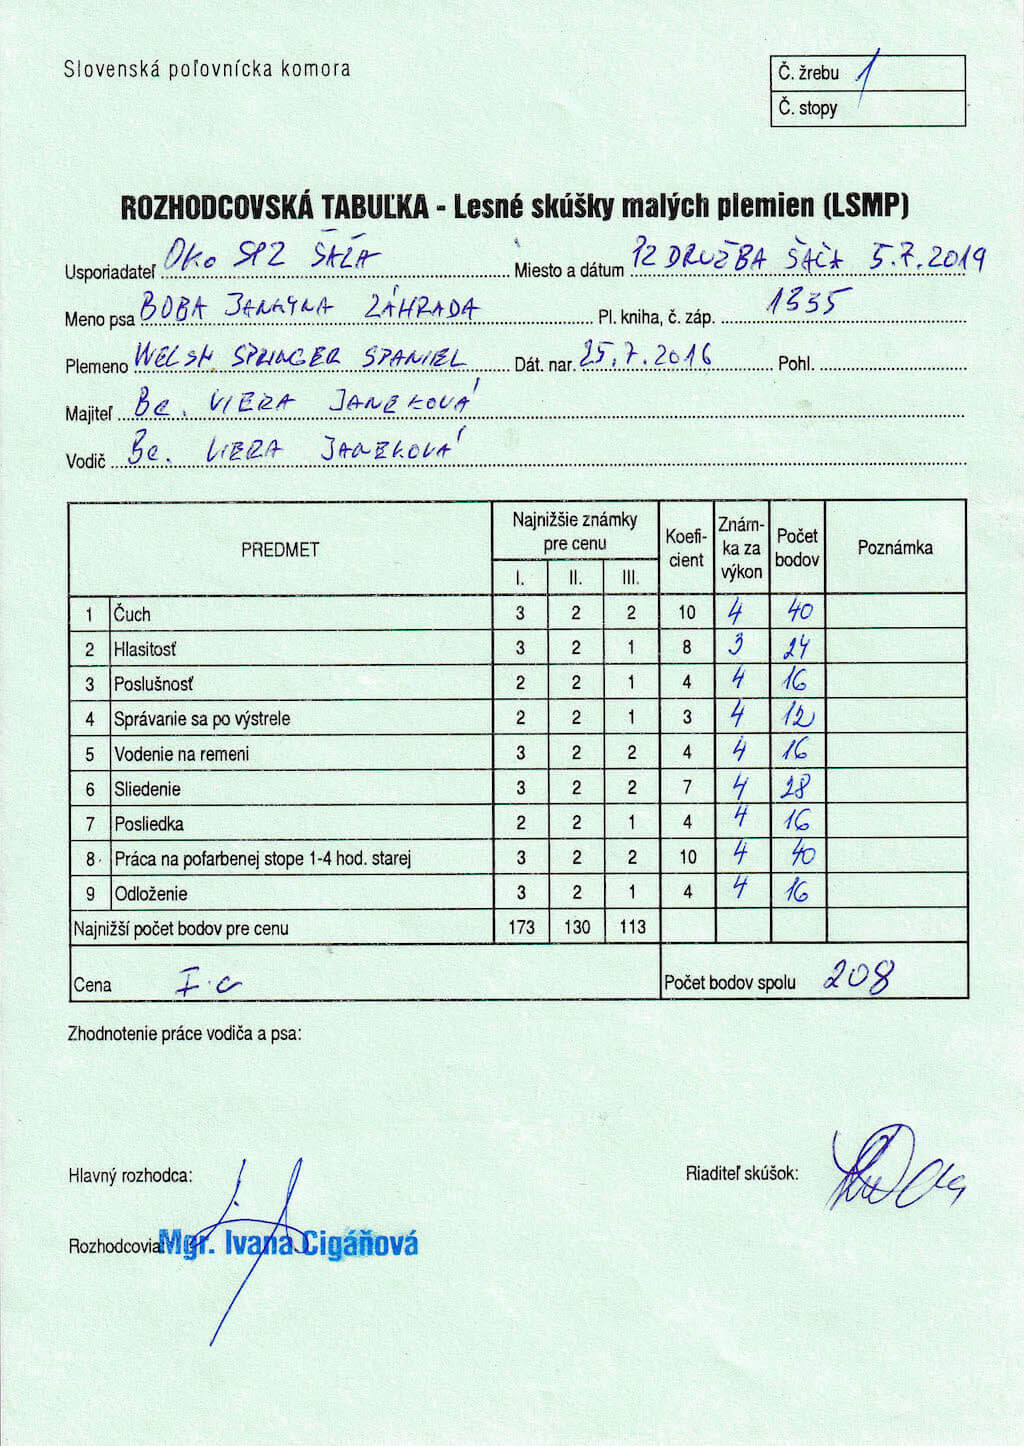 Slovenská poľovnícka komora
Č. žrebu 1
Č. stopy
ROZHODCOVSKÁ TABUĽKA - Lesné skúšky malých plemien (LSMP)
Usporiadateľ OKO SPZ ŠAĽA Miesto a dátum PZ DRUŽBA ŠAĽA 5.7.2019
Meno psa BOBA JANKYNA ZÁHRADA Pl. kniha, č. záp. 1335
Plemeno WELSH SPRINGER SPANIEL Dát. nar. 25.7.2016 Pohl.
Majiteľ Bc. VIERA JANEKOVÁ
Vodič Bc. VIERA JANEKOVÁ
PREDMET Najnižšie známky pre cenu Koeficient Známka za výkon Počet bodov Poznámka
I. II. III.
1 Čuch 3 2 2 10 4 40
2 Hlasitosť 3 2 1 8 3 24
3 Poslušnosť 2 2 1 4 4 16
4 Správanie sa po výstrele 2 2 1 3 4 12
5 Vodenie na remeni 3 2 2 4 4 16
6 Sliedenie 3 2 2 7 4 28
7 Posliedka 2 2 1 4 4 16
8 Práca na pofarbenej stope 1-4 hod. starej 3 2 2 10 4 40
9 Odloženie 3 2 1 4 4 16
Najnižší počet bodov pre cenu 173 130 113
Cena I.c Počet bodov spolu 208
Zhodnotenie práce vodiča a psa:
Hlavný rozhodca: Riaditeľ skúšok:
Rozhodcovia: Mgr. Ivana Cigáňová